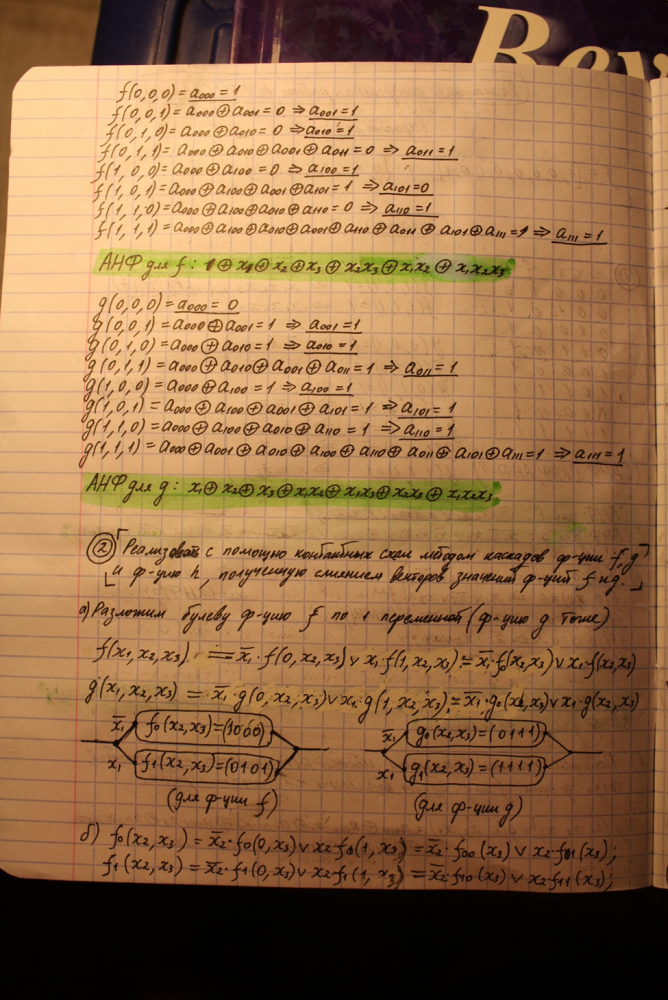 Rev
f(0,0,0) = a₀₀₀ = 1
f(0,0,1) = a₀₀₀ ⊕ a₀₀₁ = 0 ⇒ a₀₀₁ = 1
f(0,1,0) = a₀₀₀ ⊕ a₀₁₀ = 0 ⇒ a₀₁₀ = 1
f(0,1,1) = a₀₀₀ ⊕ a₀₁₀ ⊕ a₀₀₁ ⊕ a₀₁₁ = 0 ⇒ a₀₁₁ = 1
f(1,0,0) = a₀₀₀ ⊕ a₁₀₀ = 0 ⇒ a₁₀₀ = 1
f(1,0,1) = a₀₀₀ ⊕ a₁₀₀ ⊕ a₀₀₁ ⊕ a₁₀₁ = 1 ⇒ a₁₀₁ = 0
f(1,1,0) = a₀₀₀ ⊕ a₁₀₀ ⊕ a₀₁₀ ⊕ a₁₁₀ = 0 ⇒ a₁₁₀ = 1
f(1,1,1) = a₀₀₀ ⊕ a₁₀₀ ⊕ a₀₁₀ ⊕ a₀₀₁ ⊕ a₁₁₀ ⊕ a₀₁₁ ⊕ a₁₀₁ ⊕ a₁₁₁ = 1 ⇒ a₁₁₁ = 1
АНФ для f: 1 ⊕ x₁ ⊕ x₂ ⊕ x₃ ⊕ x₂x₃ ⊕ x₁x₂ ⊕ x₁x₂x₃
g(0,0,0) = a₀₀₀ = 0
g(0,0,1) = a₀₀₀ ⊕ a₀₀₁ = 1 ⇒ a₀₀₁ = 1
g(0,1,0) = a₀₀₀ ⊕ a₀₁₀ = 1 ⇒ a₀₁₀ = 1
g(0,1,1) = a₀₀₀ ⊕ a₀₁₀ ⊕ a₀₀₁ ⊕ a₀₁₁ = 1 ⇒ a₀₁₁ = 1
g(1,0,0) = a₀₀₀ ⊕ a₁₀₀ = 1 ⇒ a₁₀₀ = 1
g(1,0,1) = a₀₀₀ ⊕ a₁₀₀ ⊕ a₀₀₁ ⊕ a₁₀₁ = 1 ⇒ a₁₀₁ = 1
g(1,1,0) = a₀₀₀ ⊕ a₁₀₀ ⊕ a₀₁₀ ⊕ a₁₁₀ = 1 ⇒ a₁₁₀ = 1
g(1,1,1) = a₀₀₀ ⊕ a₀₀₁ ⊕ a₀₁₀ ⊕ a₁₀₀ ⊕ a₁₁₀ ⊕ a₀₁₁ ⊕ a₁₀₁ ⊕ a₁₁₁ = 1 ⇒ a₁₁₁ = 1
АНФ для g: x₁ ⊕ x₂ ⊕ x₃ ⊕ x₁x₂ ⊕ x₁x₃ ⊕ x₂x₃ ⊕ x₁x₂x₃
② Реализовать с помощью контактных схем методом каскадов ф-ции f, g
и ф-цию h, полученную слиянием векторов значений ф-ций f и g.
а) Разложим булеву ф-цию f по 1 переменной (ф-цию g тоже)
f(x₁,x₂,x₃) = x̄₁·f(0,x₂,x₃) ∨ x₁·f(1,x₂,x₃) = x̄₁·f₀(x₂,x₃) ∨ x₁·f(x₂,x₃)
g(x₁,x₂,x₃) = x̄₁·g(0,x₂,x₃) ∨ x₁·g(1,x₂,x₃) = x̄₁·g₀(x₂,x₃) ∨ x₁·g(x₂,x₃)
x̄₁ f₀(x₂,x₃) = (1000) x̄₁ g₀(x₂,x₃) = (0111)
x₁ f₁(x₂,x₃) = (0101) x₁ g₁(x₂,x₃) = (1111)
(для ф-ции f) (для ф-ции g)
б) f₀(x₂,x₃) = x̄₂·f₀(0,x₃) ∨ x₂·f₀(1,x₃) = x̄₂·f₀₀(x₃) ∨ x₂·f₀₁(x₃);
f₁(x₂,x₃) = x̄₂·f₁(0,x₃) ∨ x₂·f₁(1,x₃) = x̄₂·f₁₀(x₃) ∨ x₂·f₁₁(x₃);